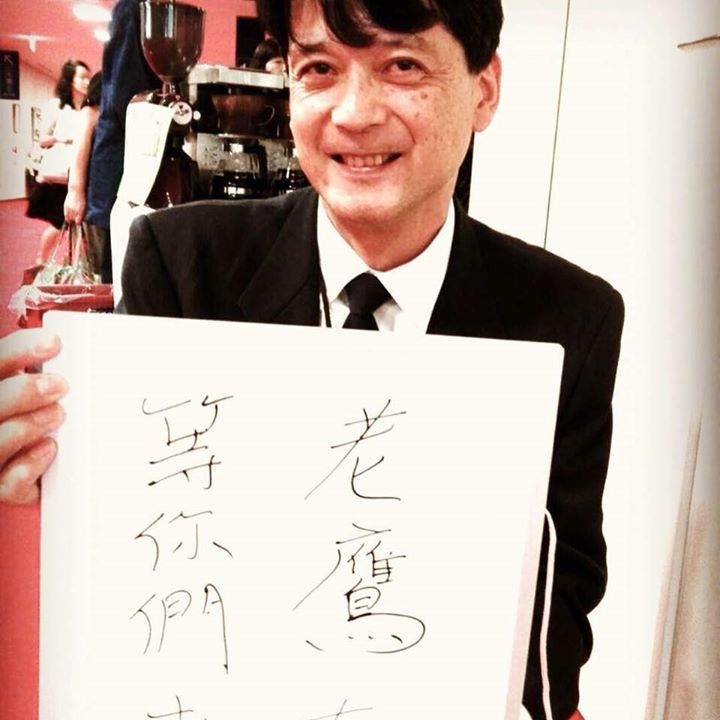 老鷹
等你們